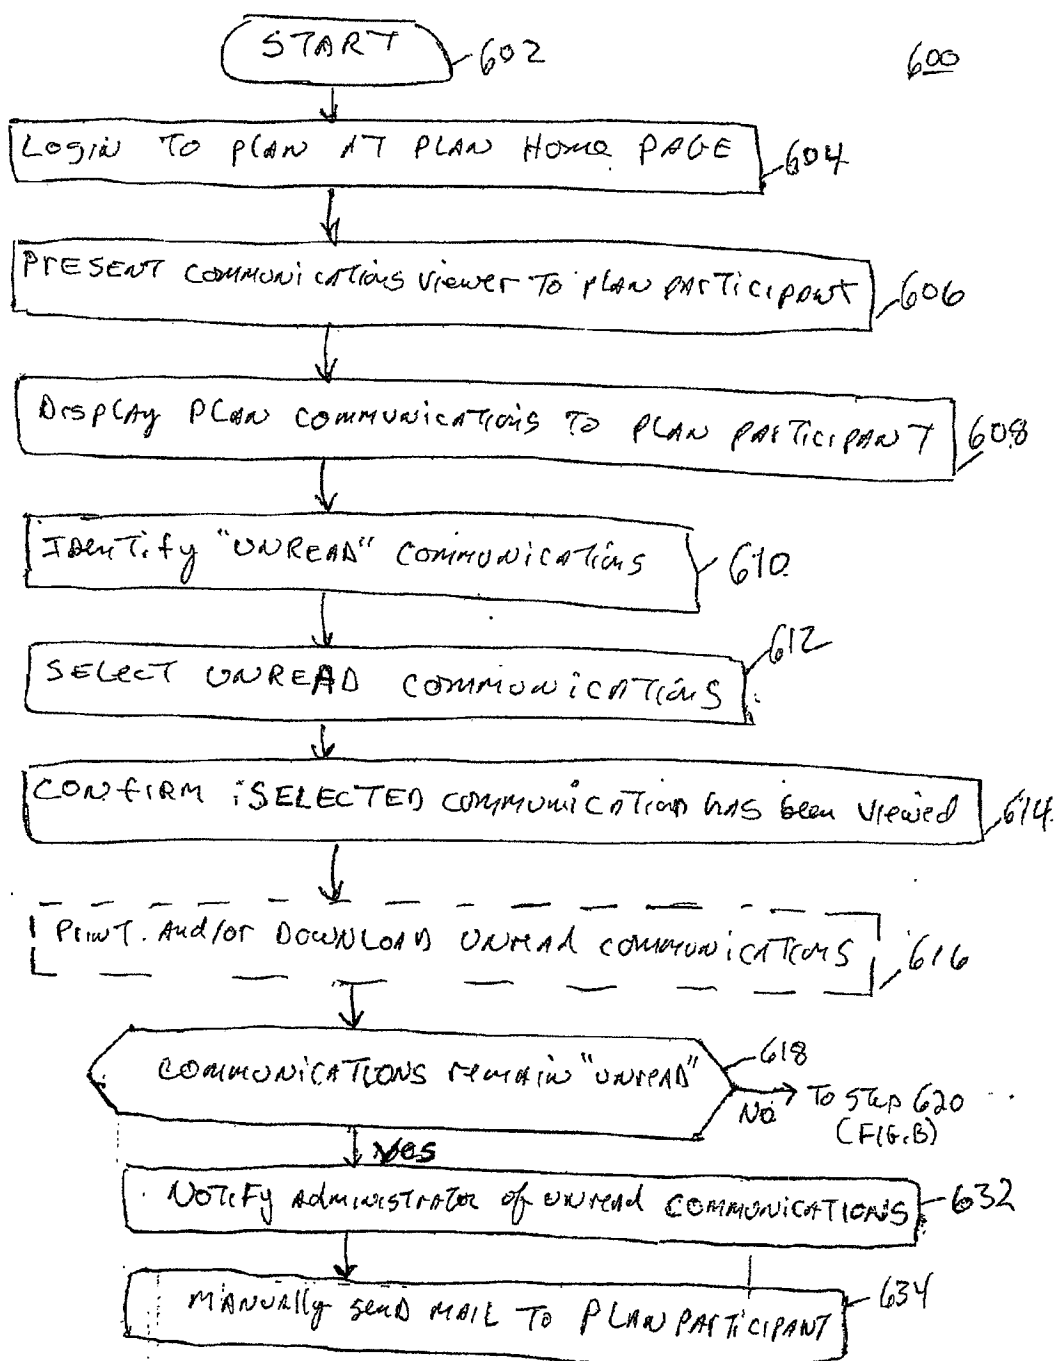 START
602
600
Login To PLAN AT PLAN Home PAGE
604
PRESENT COMMUNICATIONS Viewer To PLAN PARTICIPANT
606
Display PLAN COMMUNICATIONS TO PLAN PARTICIPANT
608
Identify "UNREAD" COMMUNICATIONS
610
SELECT UNREAD COMMUNICATIONS
612
CONFIRM SELECTED COMMUNICATION HAS been Viewed
614
Print And/or DOWNLOAD UNREAD COMMUNICATIONS
616
COMMUNICATIONS remain "UNREAD"
618
NO
To Step 620
(FIG.B)
Yes
NOTIFY Administrator of UNREAD COMMUNICATIONS
632
MANUALLY SEND MAIL TO PLAN PARTICIPANT
634